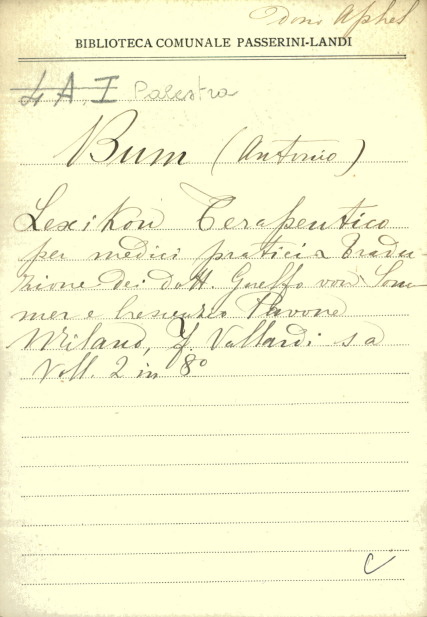 Dono Aphel
BIBLIOTECA COMUNALE PASSERINI-LANDI
4 A. I Palestra
Bum (Antonio)
Lexikon Terapeutico
per medici pratici Tradu-
zione dei dott. Guelfo von Som-
mer e Crescenzo Pavone
Milano, F. Vallardi s a
Voll. 2 in 8°
C